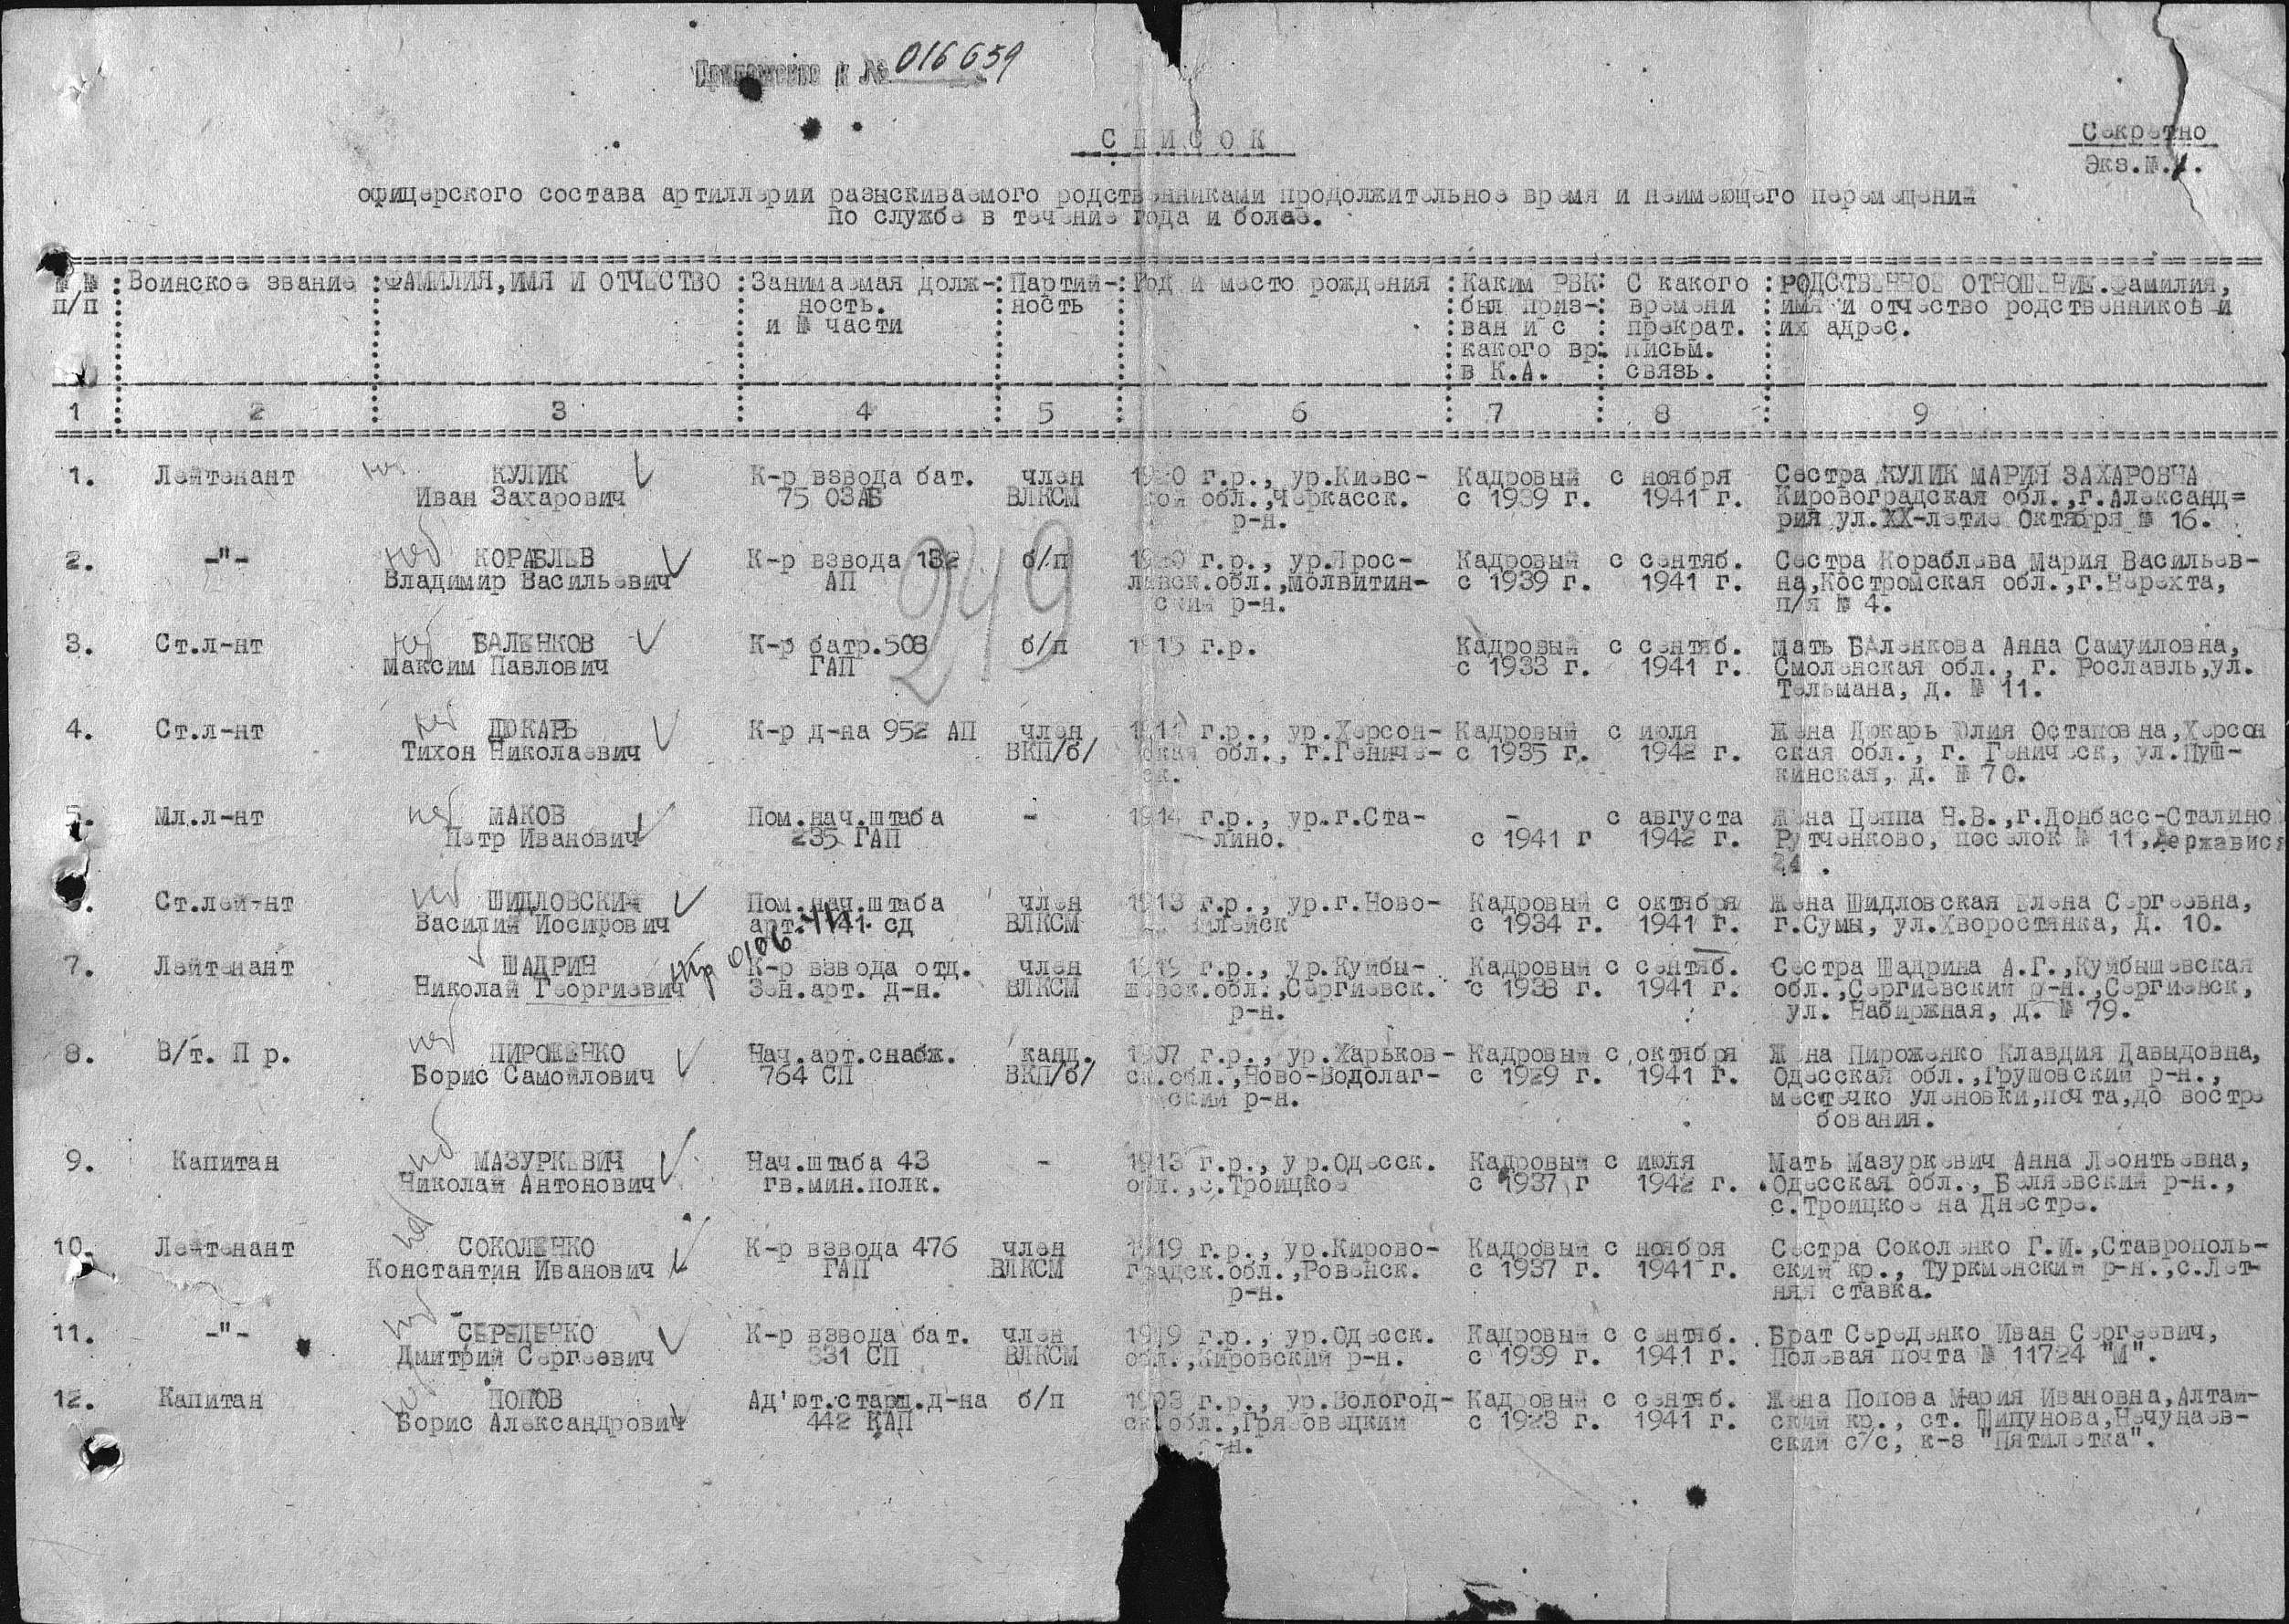 Приложение к № 016659
СПИСОК
Секретно
Экз.№.
офицерского состава артиллерии разыскиваемого родственниками продолжительное время и неимеющего перемещений
по службе в течение года и более.
№№ п/п : Воинское звание : ФАМИЛИЯ,ИМЯ И ОТЧЕСТВО : Занимаемая долж-ность. и № части : Партий-ность : Год и место рождения : Каким РВК был приз-ван и с какого вр. в К.А. : С какого времени прекрат. письм. связь. : РОДСТВЕННОЕ ОТНОШЕНИЕ.Фамилия, имя и отчество родственников и их адрес.
1 : 2 : 3 : 4 : 5 : 6 : 7 : 8 : 9
1. Лейтенант КУЛИК К-р взвода бат. член 1920 г.р., ур.Киевс- Кадровый с ноября Сестра КУЛИК МАРИЯ ЗАХАРОВНА
Иван Захарович 75 ОЗАБ ВЛКСМ кой обл.,Черкасск. с 1939 г. 1941 г. Кировоградская обл.,г.Александ=
р-н. рия ул.ХХ-летие Октября № 16.
249
2. -"- КОРАБЛЕВ К-р взвода 132 б/п 1920 г.р., ур.Ярос- Кадровый с сентяб. Сестра Кораблева Мария Васильев-
Владимир Васильевич АП лавск.обл.,Молвитин- с 1939 г. 1941 г. на,Костромская обл.,г.Нерехта,
ский р-н. п/я № 4.
3. Ст.л-нт БАЛЕНКОВ К-р батр.508 б/п 1915 г.р. Кадровый с сентяб. Мать БАленкова Анна Самуиловна,
Максим Павлович ГАП с 1933 г. 1941 г. Смоленская обл., г. Рославль,ул.
Тельмана, д. № 11.
4. Ст.л-нт ДЮКАРЬ К-р д-на 952 АП член 1911 г.р., ур.Херсон- Кадровый с июля Жена Дюкарь Юлия Остаповна,Херсон
Тихон Николаевич ВКП/б/ ская обл., г.Гениче- с 1935 г. 1942 г. ская обл., г. Геническ, ул.Пуш-
ск. кинская, д. № 70.
5. Мл.л-нт МАКОВ Пом.нач.штаба - 1914 г.р., ур.г.Ста- - с августа Жена Цеппа Н.В.,г.Донбасс-Сталино
Петр Иванович 235 ГАП лино. с 1941 г 1942 г. Рутченково, поселок № 11,
24 .
6. Ст.лей-нт ШИДЛОВСКИЙ Пом.нач.штаба член 1913 г.р., ур.г.Ново- Кадровый с октября Жена Шидловская Елена Сергеевна,
Василий Иосифович арт. 141 сд ВЛКСМ с 1934 г. 1941 г. г.Сумы, ул.Хворостянка, д. 10.
7. Лейтенант ШАДРИН К-р взвода отд. член 1919 г.р., ур.Куйбы- Кадровый с сентяб. Сестра Шадрина А.Г.,Куйбышевская
Николай Георгиевич пр 0106 Зен.арт. д-н. ВЛКСМ шевск.обл.,Сергиевск. с 1938 г. 1941 г. обл.,Сергиевский р-н.,Сергиевск,
р-н. ул. Набиржная, д. № 79.
8. В/т. П р. ПИРОЖЕНКО Нач.арт.снабж. канд. 1907 г.р., ур.Харьков- Кадровый с октября Жена Пироженко Клавдия Давыдовна,
Борис Самойлович 764 СП ВКП/б/ ск.обл.,Ново-Водолаг- с 1929 г. 1941 г. Одесская обл.,Грушовский р-н.,
ский р-н. местечко Уленовки,почта,до востре
бования.
9. Капитан МАЗУРКЕВИЧ Нач.штаба 43 - 1913 г.р., ур.Одесск. Кадровый с июля Мать Мазуркевич Анна Леонтьевна,
Николай Антонович гв.мин.полк. обл.,с.Троицкое с 1937 г 1942 г. Одесская обл., Беляевский р-н.,
с.Троицкое на Днестре.
10. Лейтенант СОКОЛЕНКО К-р взвода 476 член 1919 г.р., ур.Кирово- Кадровый с ноября Сестра Соколенко Г.И.,Ставрополь-
Константин Иванович ГАП ВЛКСМ градск.обл.,Ровенск. с 1937 г. 1941 г. ский кр., Туркменский р-н.,с.Лет-
р-н. няя ставка.
11. -"- СЕРЕДЕНКО К-р взвода бат. член 1919 г.р., ур.Одесск. Кадровый с сентяб. Брат Середенко Иван Сергеевич,
Дмитрий Сергеевич 331 СП ВЛКСМ обл.,Кировский р-н. с 1939 г. 1941 г. Полевая почта № 11724 "М".
12. Капитан ПОПОВ Ад'ют.старш.д-на б/п 1903 г.р., ур.Вологод- Кадровый с сентяб. Жена Попова Мария Ивановна,Алтай-
Борис Александрович 442 КАП ск.обл.,Грязовецкий с 1923 г. 1941 г. ский кр., ст. Шипунова,Нечунаев-
р-н. ский с/с, к-з "Пятилетка".